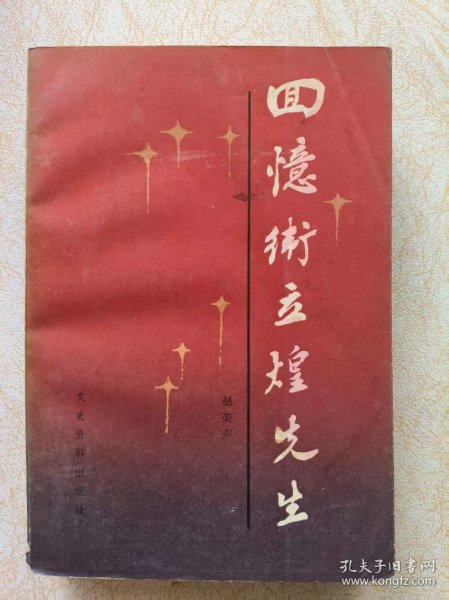 回憶衛立煌先生
赵荣声
文史资料出版社
孔夫子旧书网
www.kongfz.com